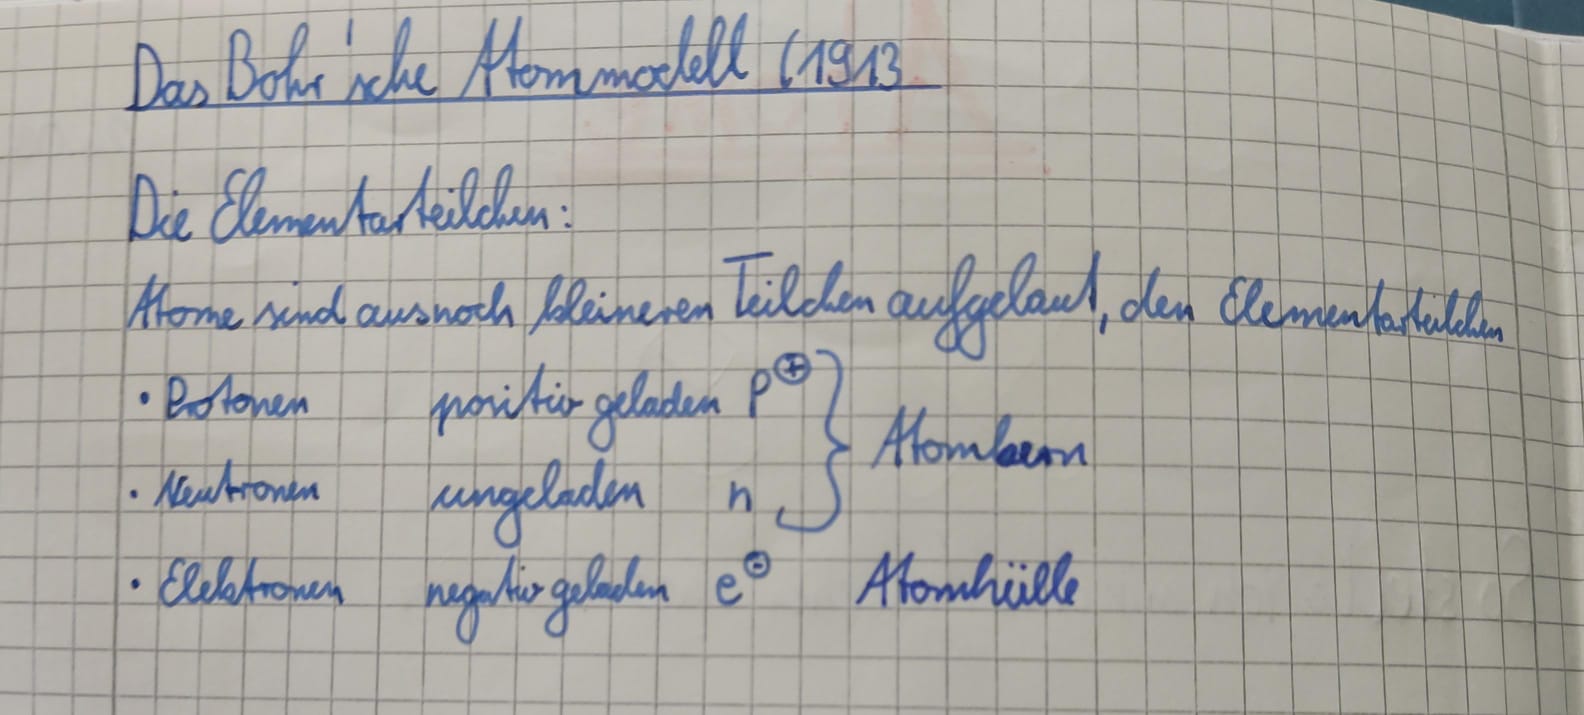 Das Bohr'sche Atommodell (1913
Die Elementarteilchen:
Atome sind aus noch kleineren Teilchen aufgebaut, den Elementarteilchen
• Protonen positiv geladen p⊕ } Atomkern
• Neutronen ungeladen n
• Elektronen negativ geladen e⊖ Atomhülle